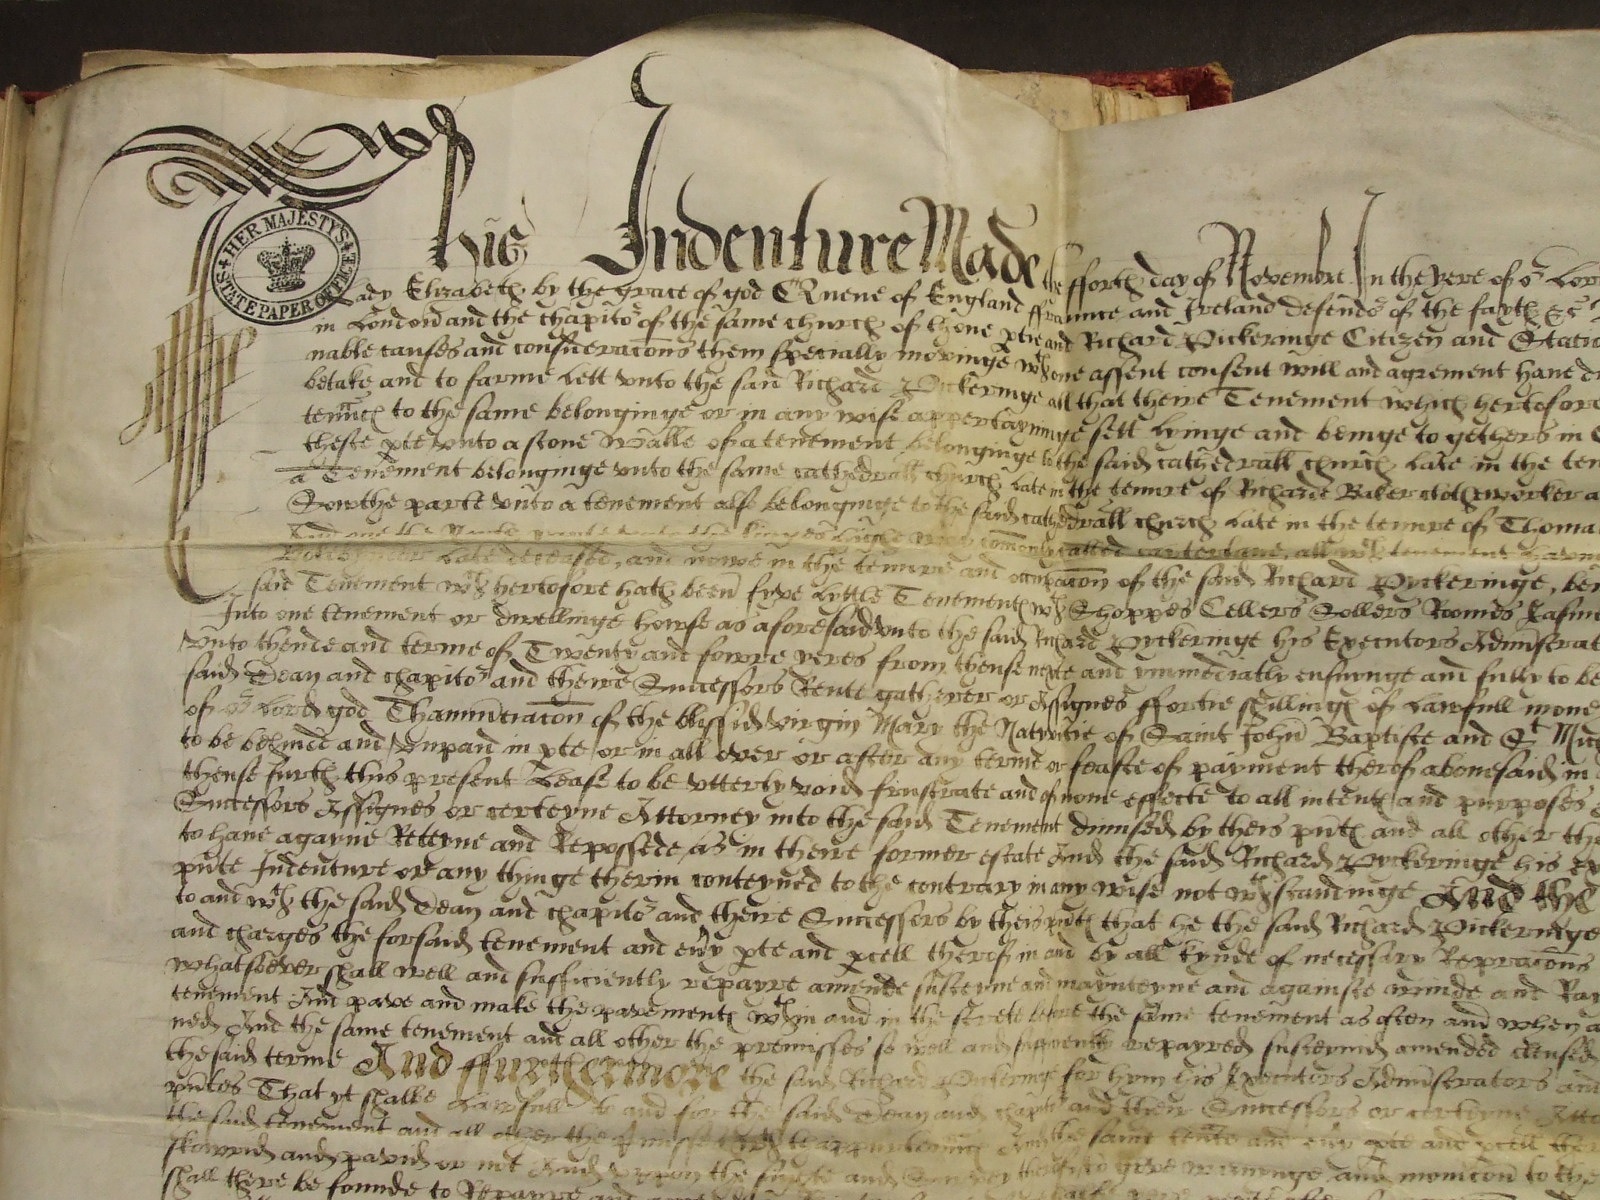 HER MAJESTY'S STATE PAPER OFFICE
This Indenture Made the fforth day of Novembre In the yere of or Lor
Lady Elizabeth by the grace of god Quene of England ffraunce and Ireland defendr of the fayth &c
in London and the chapitor of the same church of thone pte and Richard Pickeringe Citizen and Statio
nable causes and consideracons them specially movinge wth one assent consent will and agrement have d
betake and to farme Lett unto the said Richard Pickeringe all that theire Tenement which hertofore
to the same belonginge or in any wise appertayninge sett lyinge and beinge to gethers in
theste pte unto a stone walle of a tenement belonginge to the said cathedrall church late in the ten
a Tenement belonginge unto the same cathedrall church late in the tenure of Richard Baker clothworker a
Sowthe parte unto a tenement als belonginge to the said cathedrall church late in the tenure of Thoma
And one the North parte unto the comenly called carterlane, all wch tenement
late deceased, and nowe in the tenure and occupacon of the said Richard Pyckeringe, bei
said Tenement wch hertofore hath been fyve lyttle Tenements wth Shoppes Cellers Sollers Roomes
Into one tenement or dwellinge howse as aforesaid unto the said Richard Pyckeringe his Executors Administrat
unto thende and terme of Twenty and fowre yeres from thense nexte and ymmediatly ensuynge and fully to be
said Dean and chapitor and theire Successors Rente gatherer or Assignes ffortie shillings of lawfull mone
of or Lord god Thannunciacon of the blissid virgin Mary the Nativitie of Saint John Baptiste and St Mich
to be behinde and unpaid in pte or in all over or after any terme or feaste of payment therof abovesaid in
thense furth this present Lease to be utterly void frustrate and of none effecte to all intents and purposes
Successors Assignes or certeyne Attorney into the said Tenement dimised by theis pnts and all other the
to have agayne Reteyne and Repossede as in theire former estate And the said Richard Pyckeringe his ex
pnte Indenture or any thinge therin conteyned to the contrary in any wise not wthstandinge And the
to and wth the said Dean and chapitor and theire Successors by theis pnts that he the said Richard Pickeringe
and charges the forsaid tenement and evy pte and pcell therof in and by all kynde of necessary Repracons
whatsoever shall well and sufficiently repayre amende susteyne and maynteyne and againste winde and Ray
tenement And pave and make the pavements wthin and in the strete before the same tenement as often and when
ned And the same tenement and all other the premisses so well and sufficiently repayred susteined amended clensed
the said terme And ffurthermore the said Richard Pickeringe for hym his Executors Administrators and
pntes That yt shalbe Lawfull to and for the said Dean and chapitor and their Successors or certeyne Atto
the said tenement and all other the pmisses And the same tente and evy pte and pcell ther
skowrid and pavid or not And upon the and geve warninge and monicon to the
shall there be founde to Repayre and